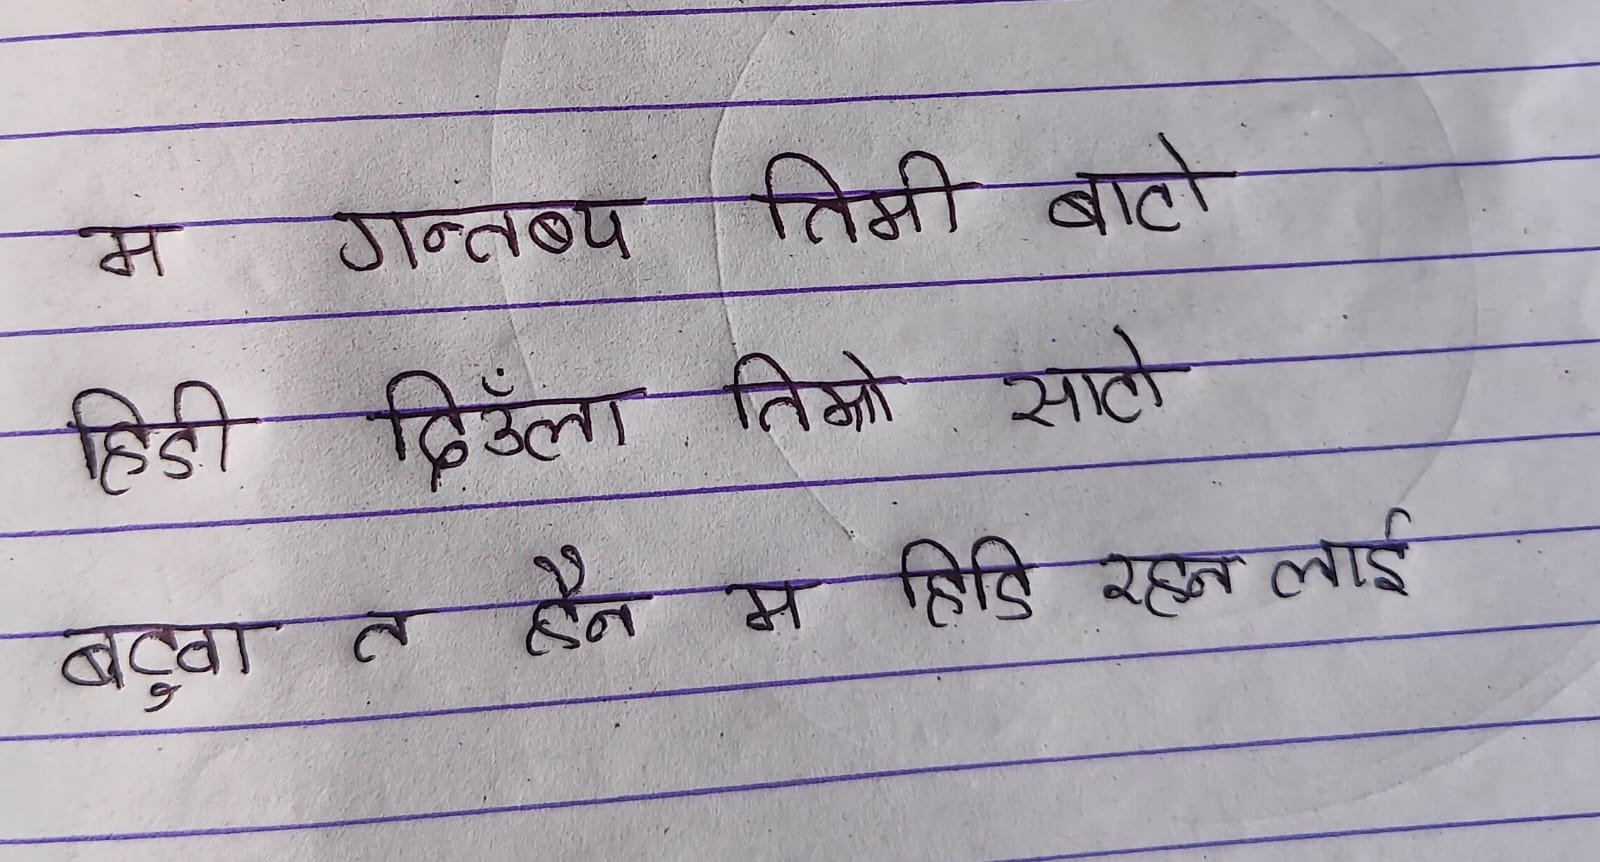 म गन्तब्य तिमी बाटो
हिडी दिउँला तिम्रो साटो
बटुवा त हैन म हिडि रहन लाई